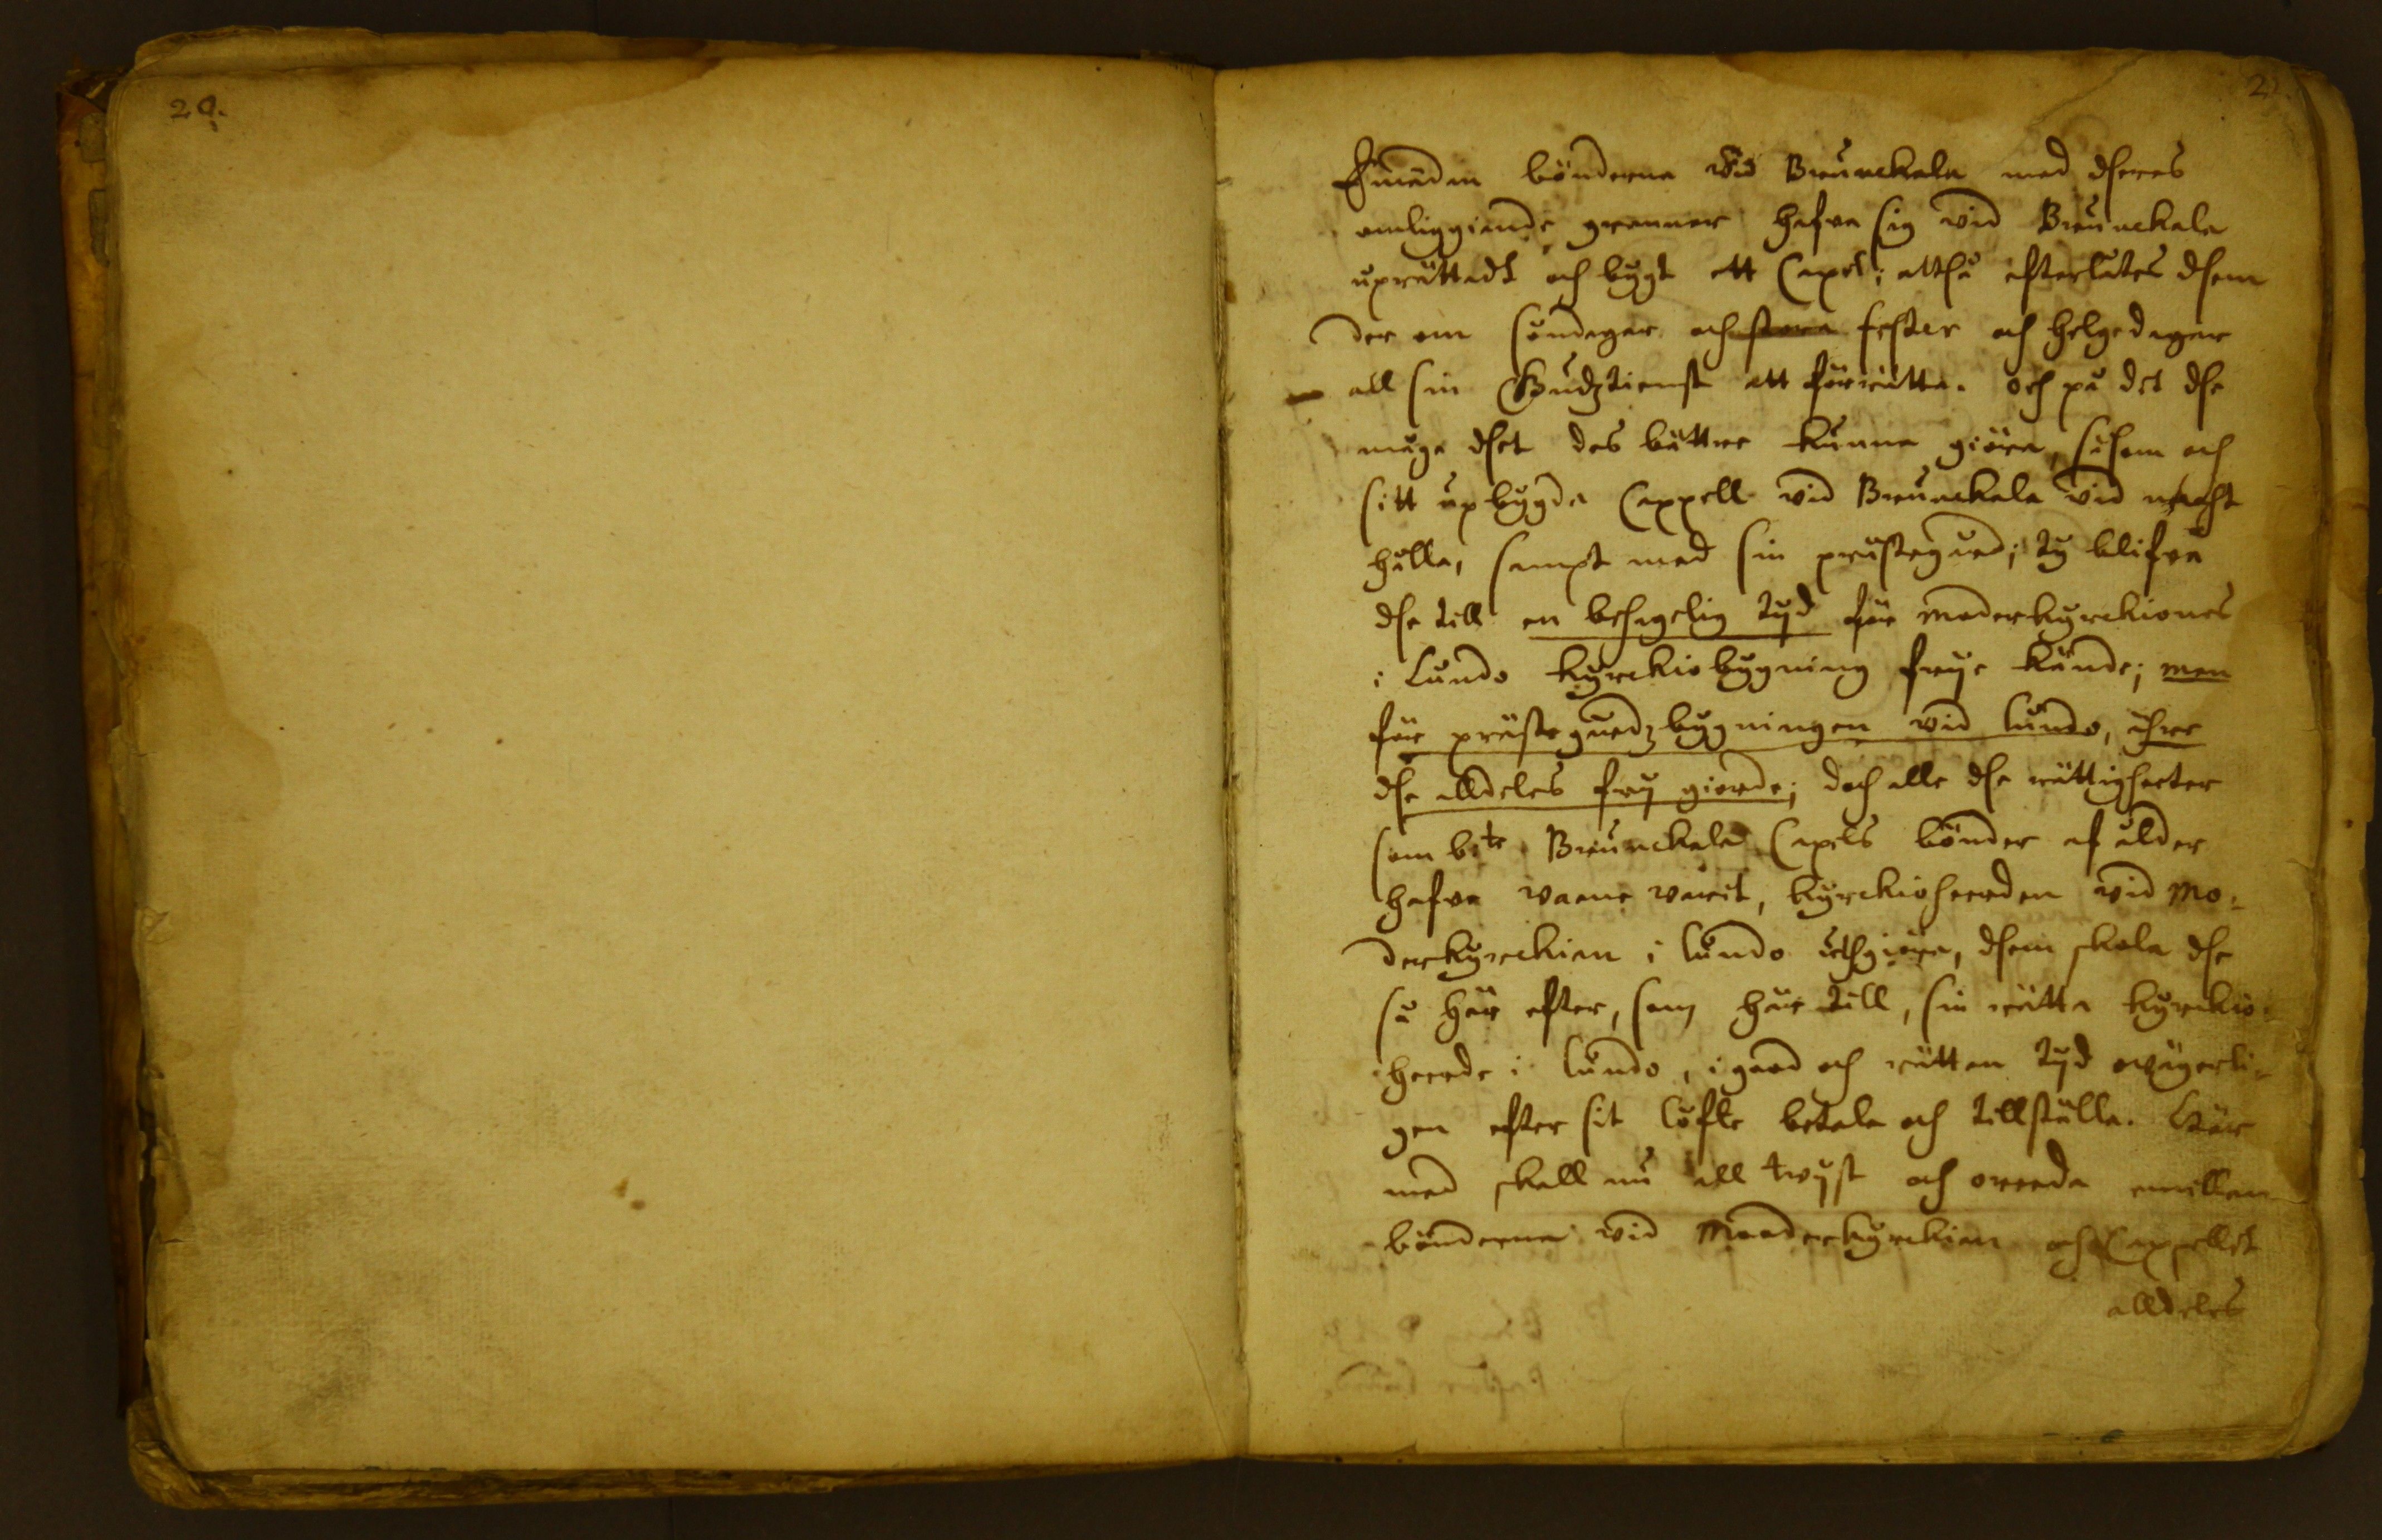 20.
2
Emädan bönderna wid Brunckala med dheras
omliggiande grannar hafva sig vid Brunckala
uprättadt och bygt ett Capel; altså efterlåtes dhem
der om söndagar och stora fester och helgedagar
all sin Gudztienst att förrätta. och på det dhe
måge dhet des bättre kunna giöra, såsom och
sitt upbygda Cappell vid Brunckala vid macht
hålla, sampt med sin prästegård; ty blifva
dhe till en behagelig tijd för moderkyrckiones
i Lundo kyrckiobygning frije kände; men
för prästegårdzbygningen vid Lundo, ähre
dhe alldeles frij giorde; doch alle dhe rättigheeter
som bte Brunckala Capels bönder af ålder
hafva vaane varit, kyrckioherden vid Mo-
derkyrckian i Lundo uthgiöra, dhem skola dhe
så här efter, som här till, sin rätta kyrckio-
herde i Lundo, i good och rättan tijd owägerli-
gen efter sit löfte betala och tillställa. Här
med skall nu all twijst och oreeda emillan
bönderna vid Moderkyrckian och Cappellet
alldeles